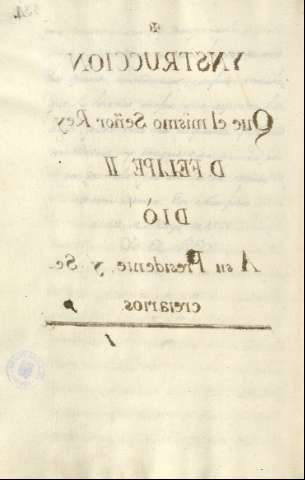 YNSTRUCCION
Que el mismo Señor Rey
D FELIPE II
DIÓ
A su Presidente, y Se-
cretarios.